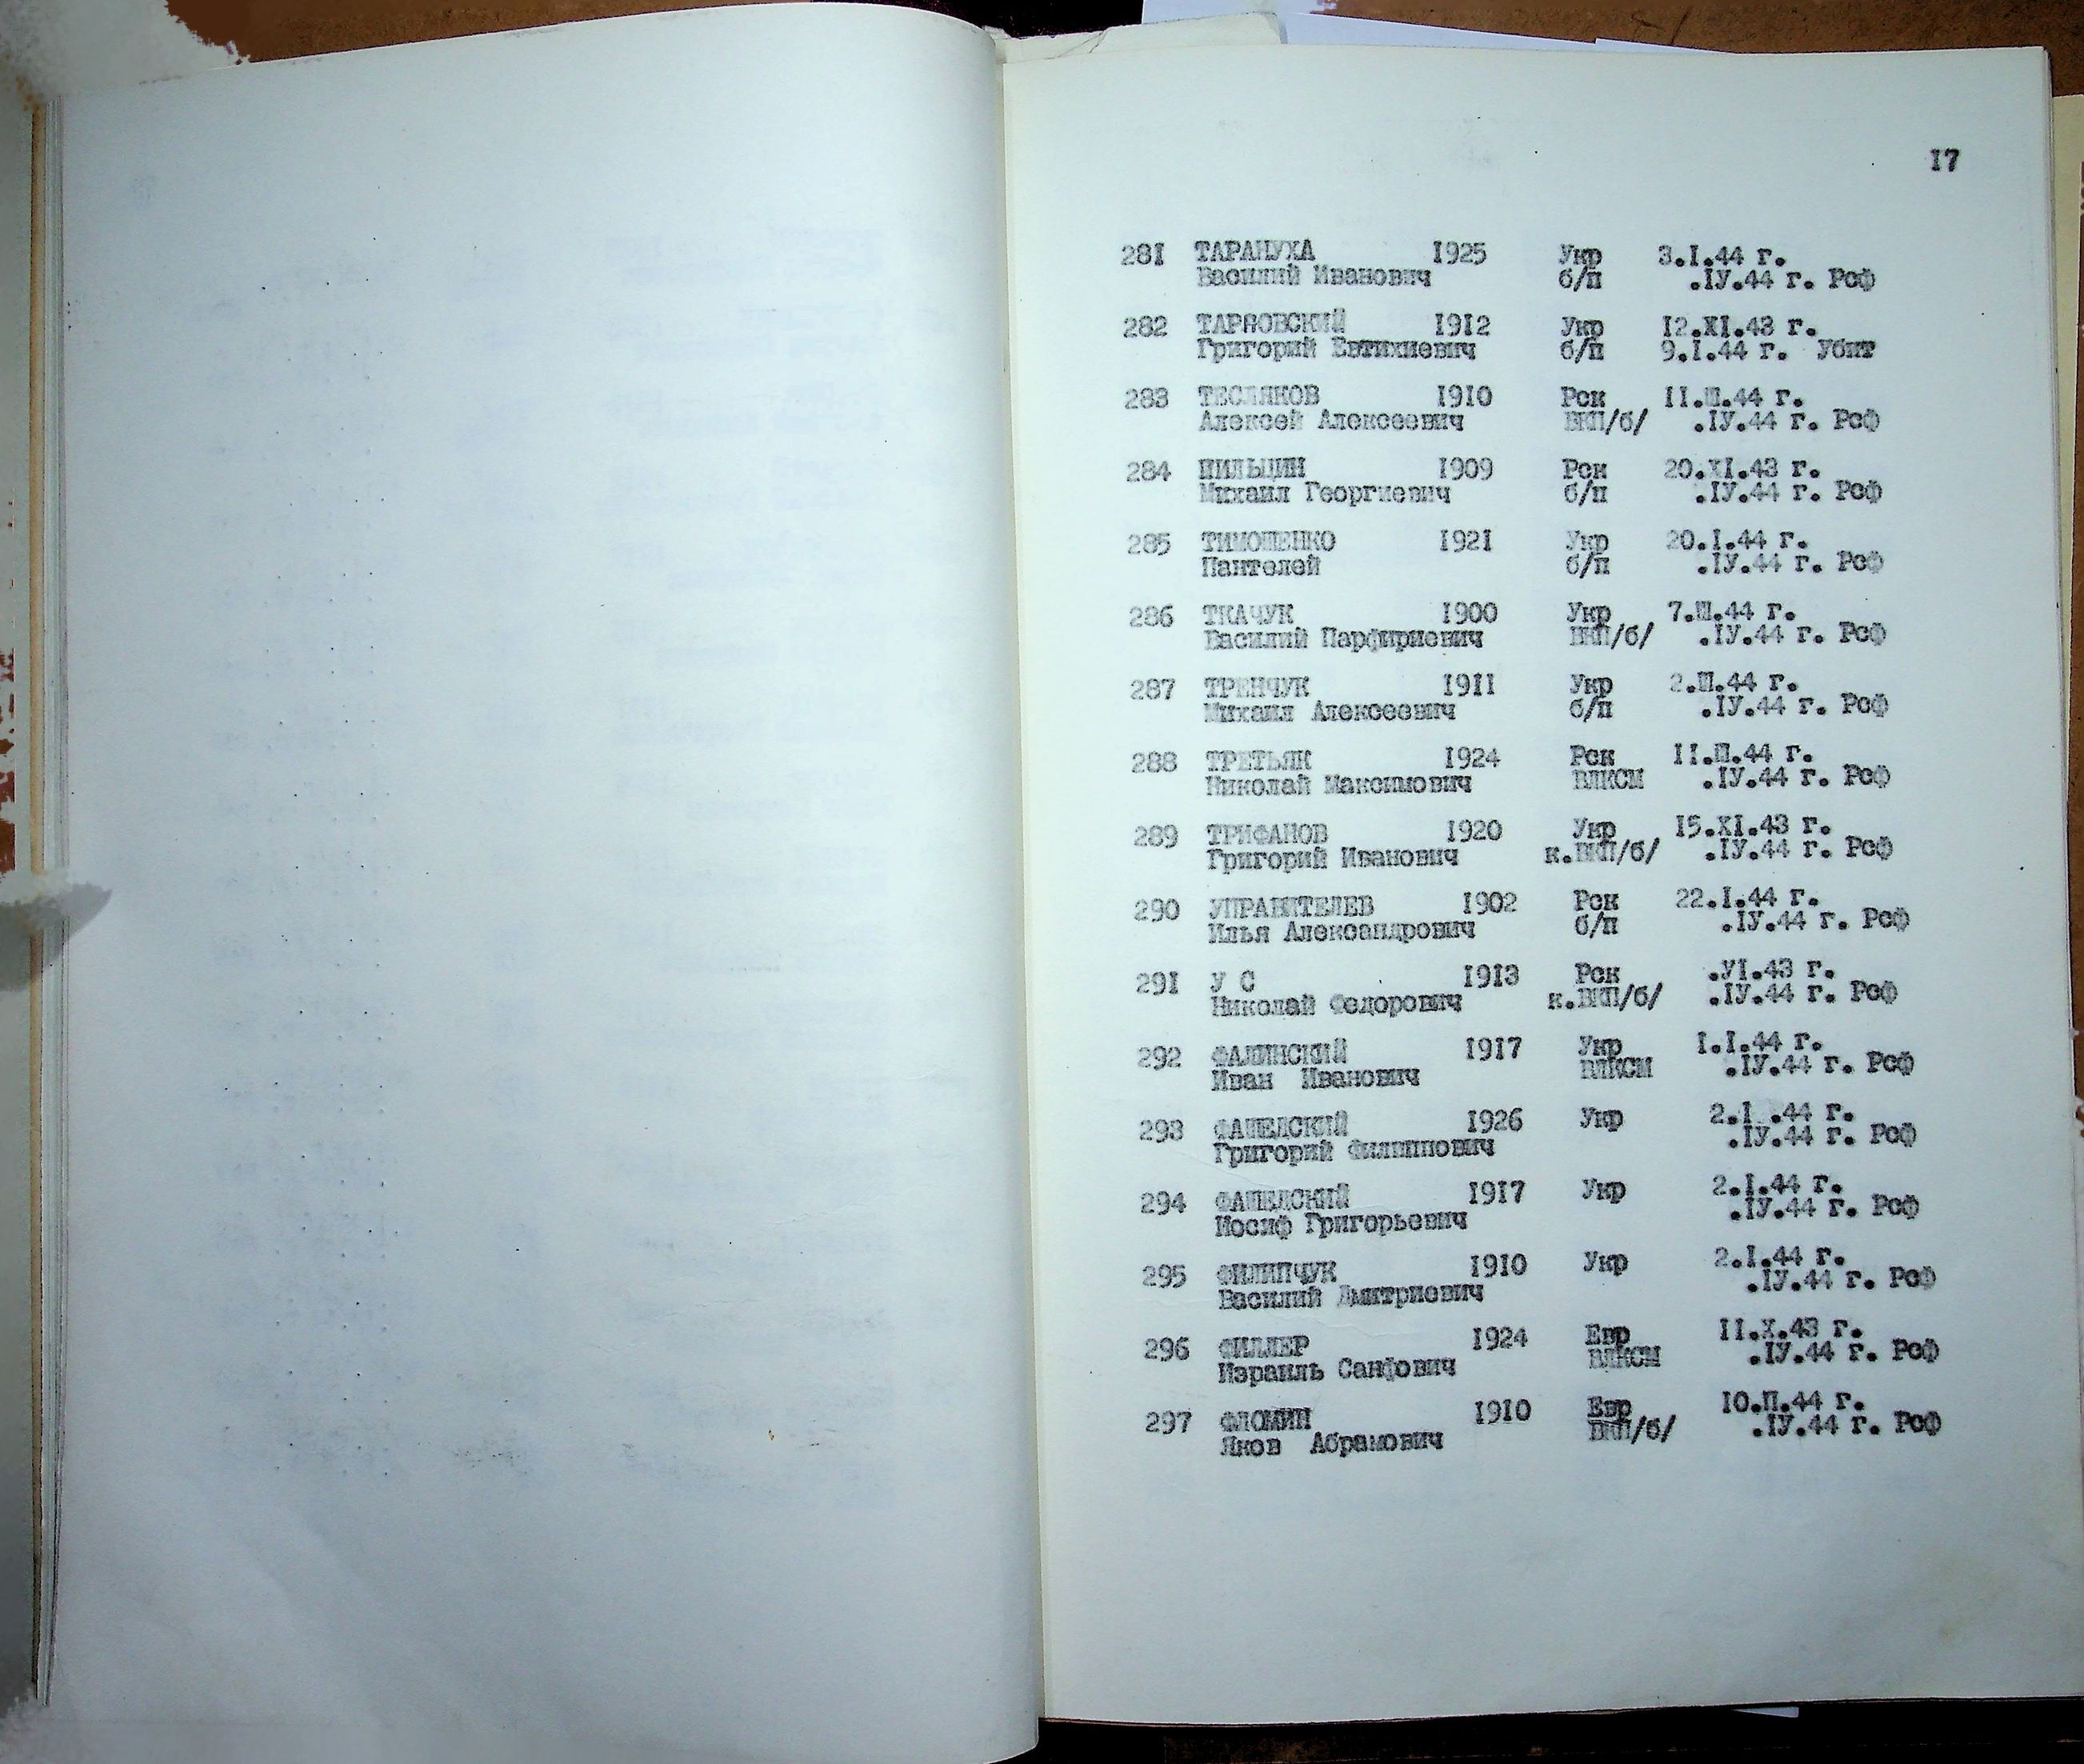 17
281 ТАРАНУХА 1925 Укр 3.I.44 г.
Василий Иванович б/п .IУ.44 г. Рсф
282 ТАРНОВСКИЙ 1912 Укр 12.XI.43 г.
Григорий Евтихиевич б/п 9.I.44 г. Убит
283 ТЕСЛЯКОВ 1910 Рск II.Ш.44 г.
Алексей Алексеевич ВКП/б/ .IУ.44 г. Рсф
284 1909 Рск 20.XI.43 г.
Михаил Георгиевич б/п .IУ.44 г. Рсф
285 ТИМОШЕНКО 1921 Укр 20.I.44 г.
Пантелей б/п .IУ.44 г. Рсф
286 ТКАЧУК 1900 Укр 7.Ш.44 г.
Василий Парфириевич ВКП/б/ .IУ.44 г. Рсф
287 ТРЕНЧУК 1911 Укр 2.Ш.44 г.
Михаил Алексеевич б/п .IУ.44 г. Рсф
288 ТРЕТЬЯК 1924 Рск II.Ш.44 г.
Николай Максимович ВЛКСМ .IУ.44 г. Рсф
289 ТРИФАНОВ 1920 Укр 15.XI.43 г.
Григорий Иванович к.ВКП/б/ .IУ.44 г. Рсф
290 УПРАВИТЕЛЕВ 1902 Рск 22.I.44 г.
Илья Александрович б/п .IУ.44 г. Рсф
291 У С 1913 Рск .УI.43 г.
Николай Федорович к.ВКП/б/ .IУ.44 г. Рсф
292 ФАЛИНСКИЙ 1917 Укр I.I.44 г.
Иван Иванович ВЛКСМ .IУ.44 г. Рсф
293 ФАШЕДСКИЙ 1926 Укр 2.I .44 г.
Григорий Филиппович .IУ.44 г. Рсф
294 ФАШЕДСКИЙ 1917 Укр 2.I.44 г.
Иосиф Григорьевич .IУ.44 г. Рсф
295 ФИЛИПЧУК 1910 Укр 2.I.44 г.
Василий Дмитриевич .IУ.44 г. Рсф
296 ФИЛЛЕР 1924 Евр II.X.43 г.
Израиль Санфович ВЛКСМ .IУ.44 г. Рсф
297 ФЛОМИН 1910 Евр 10.П.44 г.
Яков Абрамович ВКП/б/ .IУ.44 г. Рсф